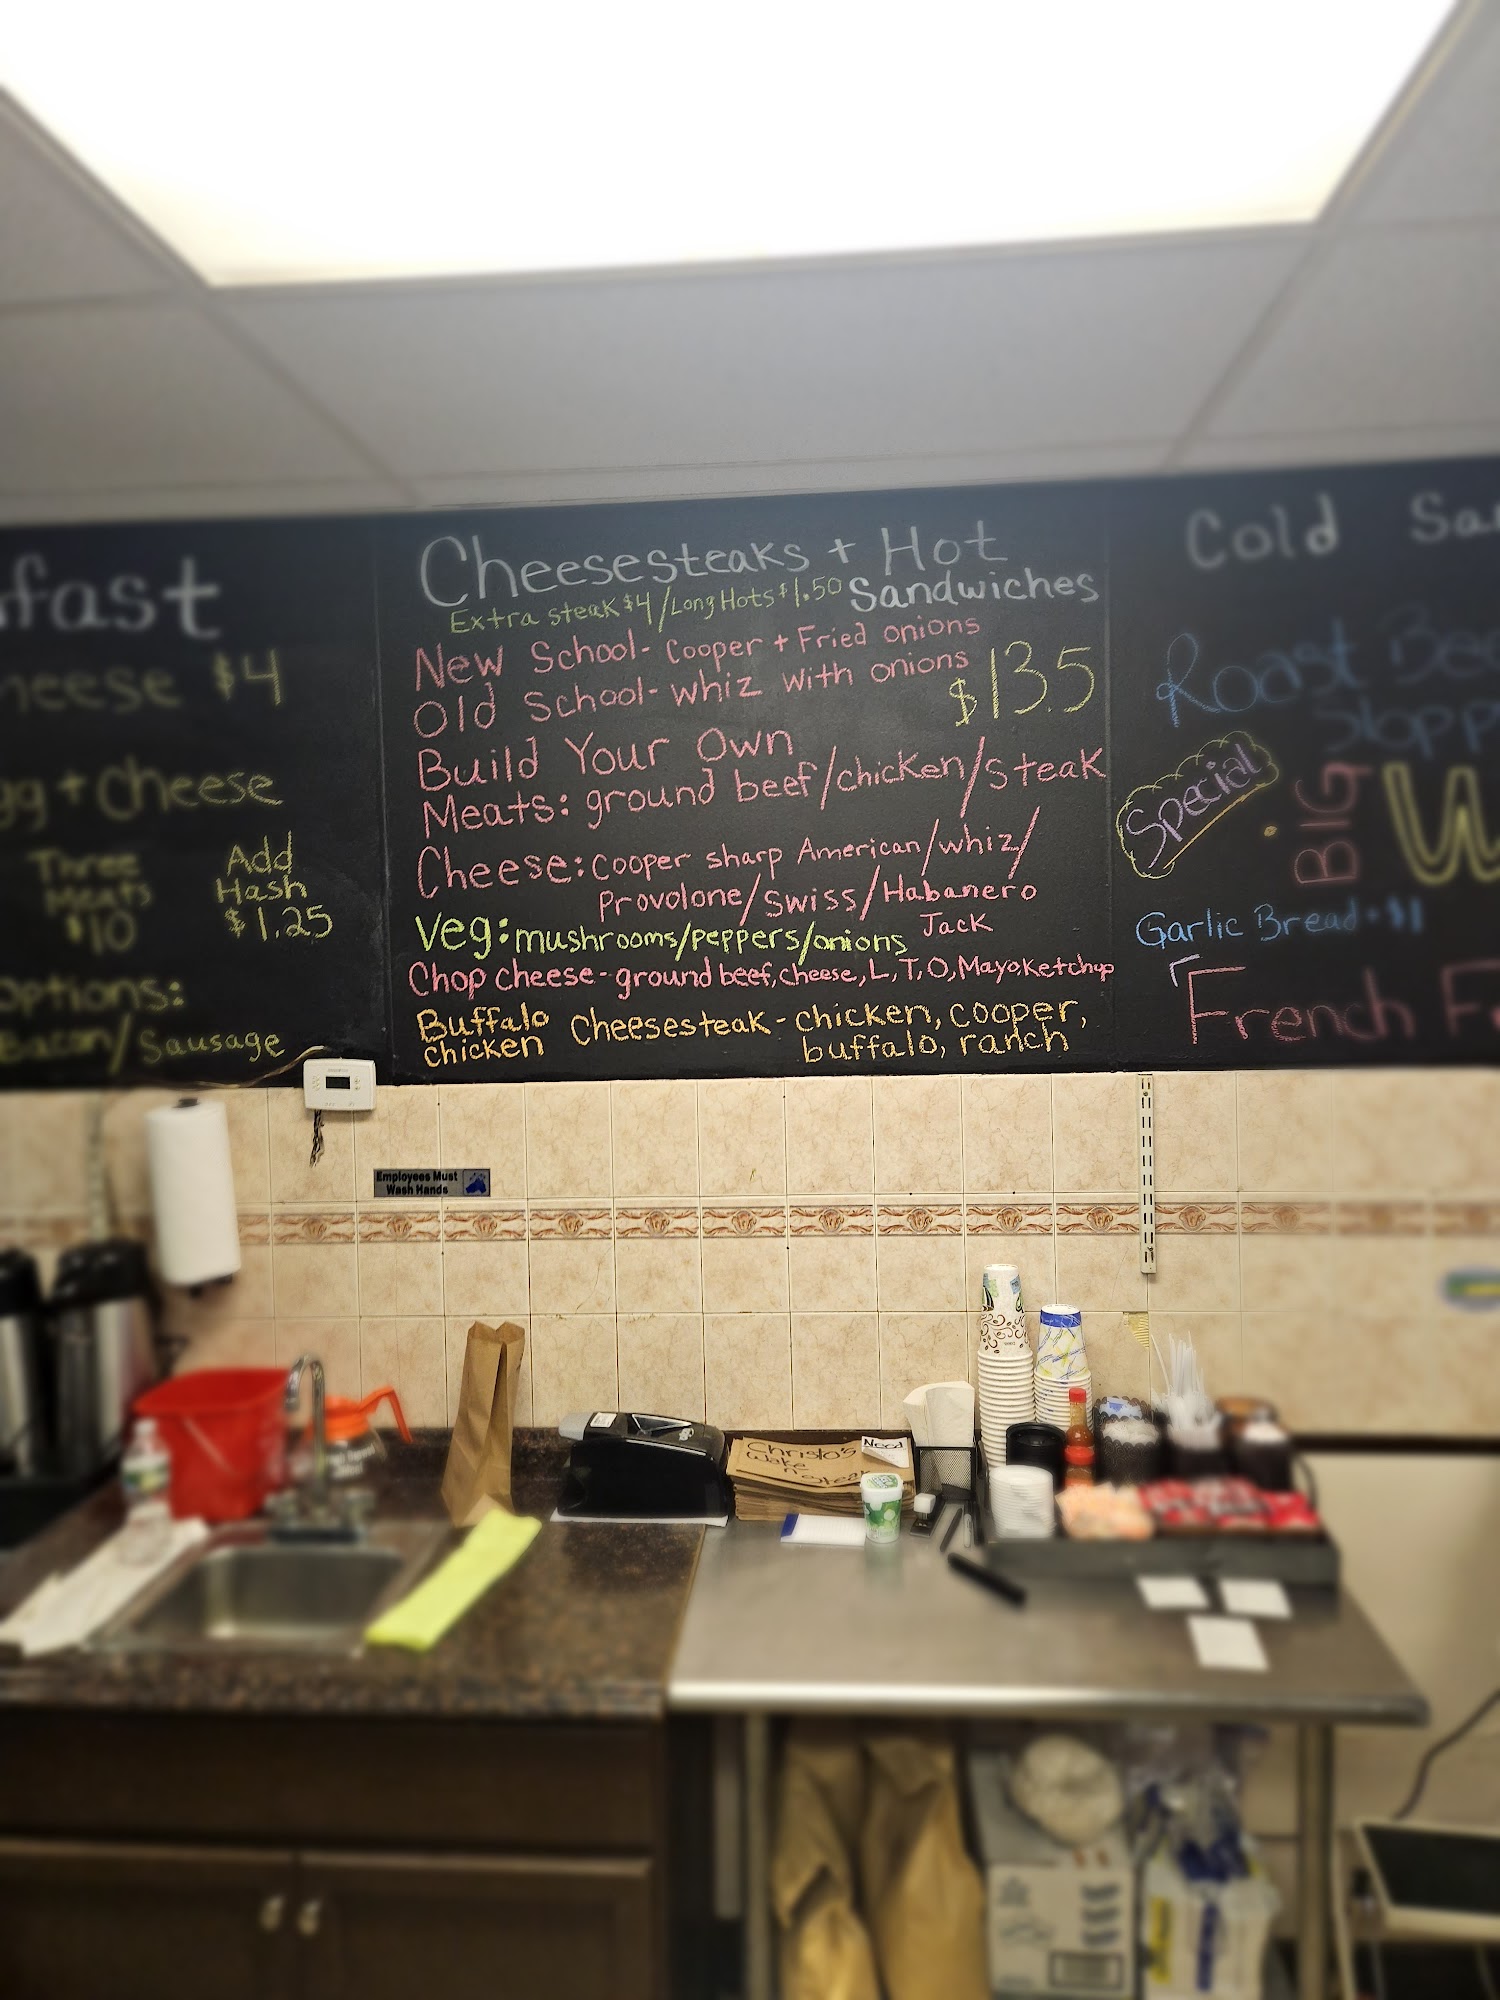 fast
heese $4
gg + Cheese
Three
Meats
$10
Add
Hash
$1.25
Options:
Bacon/Sausage
Cheesesteaks + Hot
Sandwiches
Extra steak $4/Long Hots $1.50
New School- Cooper + Fried onions
Old School- whiz with onions
$13.5
Build Your Own
Meats: ground beef/chicken/steak
Cheese: Cooper sharp American/whiz/
Provolone/Swiss/Habanero
Jack
Veg: mushrooms/peppers/onions
Chop cheese- ground beef, cheese, L, T, O, Mayo, Ketchup
Buffalo
chicken
Cheesesteak - chicken, cooper,
buffalo, ranch
Cold Sa
Roast Bee
Slopp
Special
BIG
W
Garlic Bread - $1
French F
Employees Must
Wash Hands
Christo's
Wake
Need